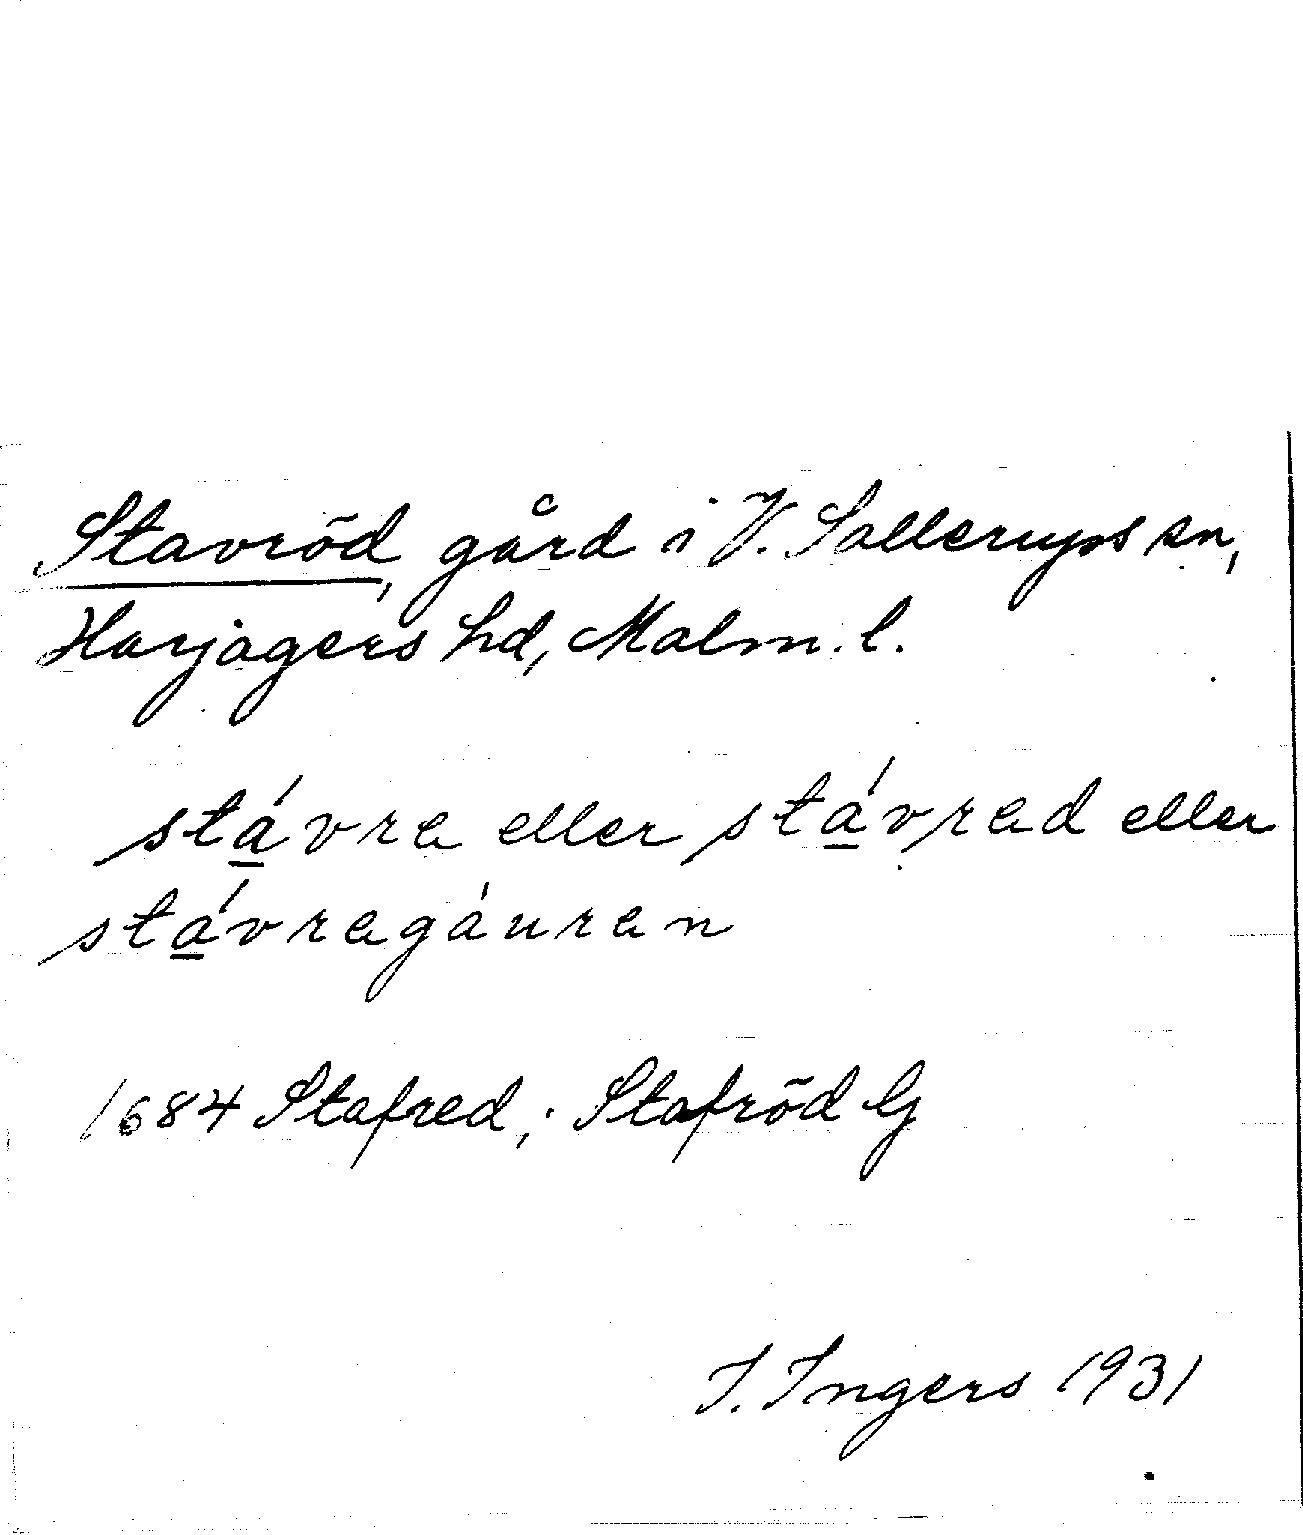 Stavröd, gård i V. Sallerups sn,
Harjagers hd, Malm. l.
stá̱vra eller stá̱vrad eller
stá̱vragáuran
1684 Stafred; Stafröd G
I. Ingers 1931